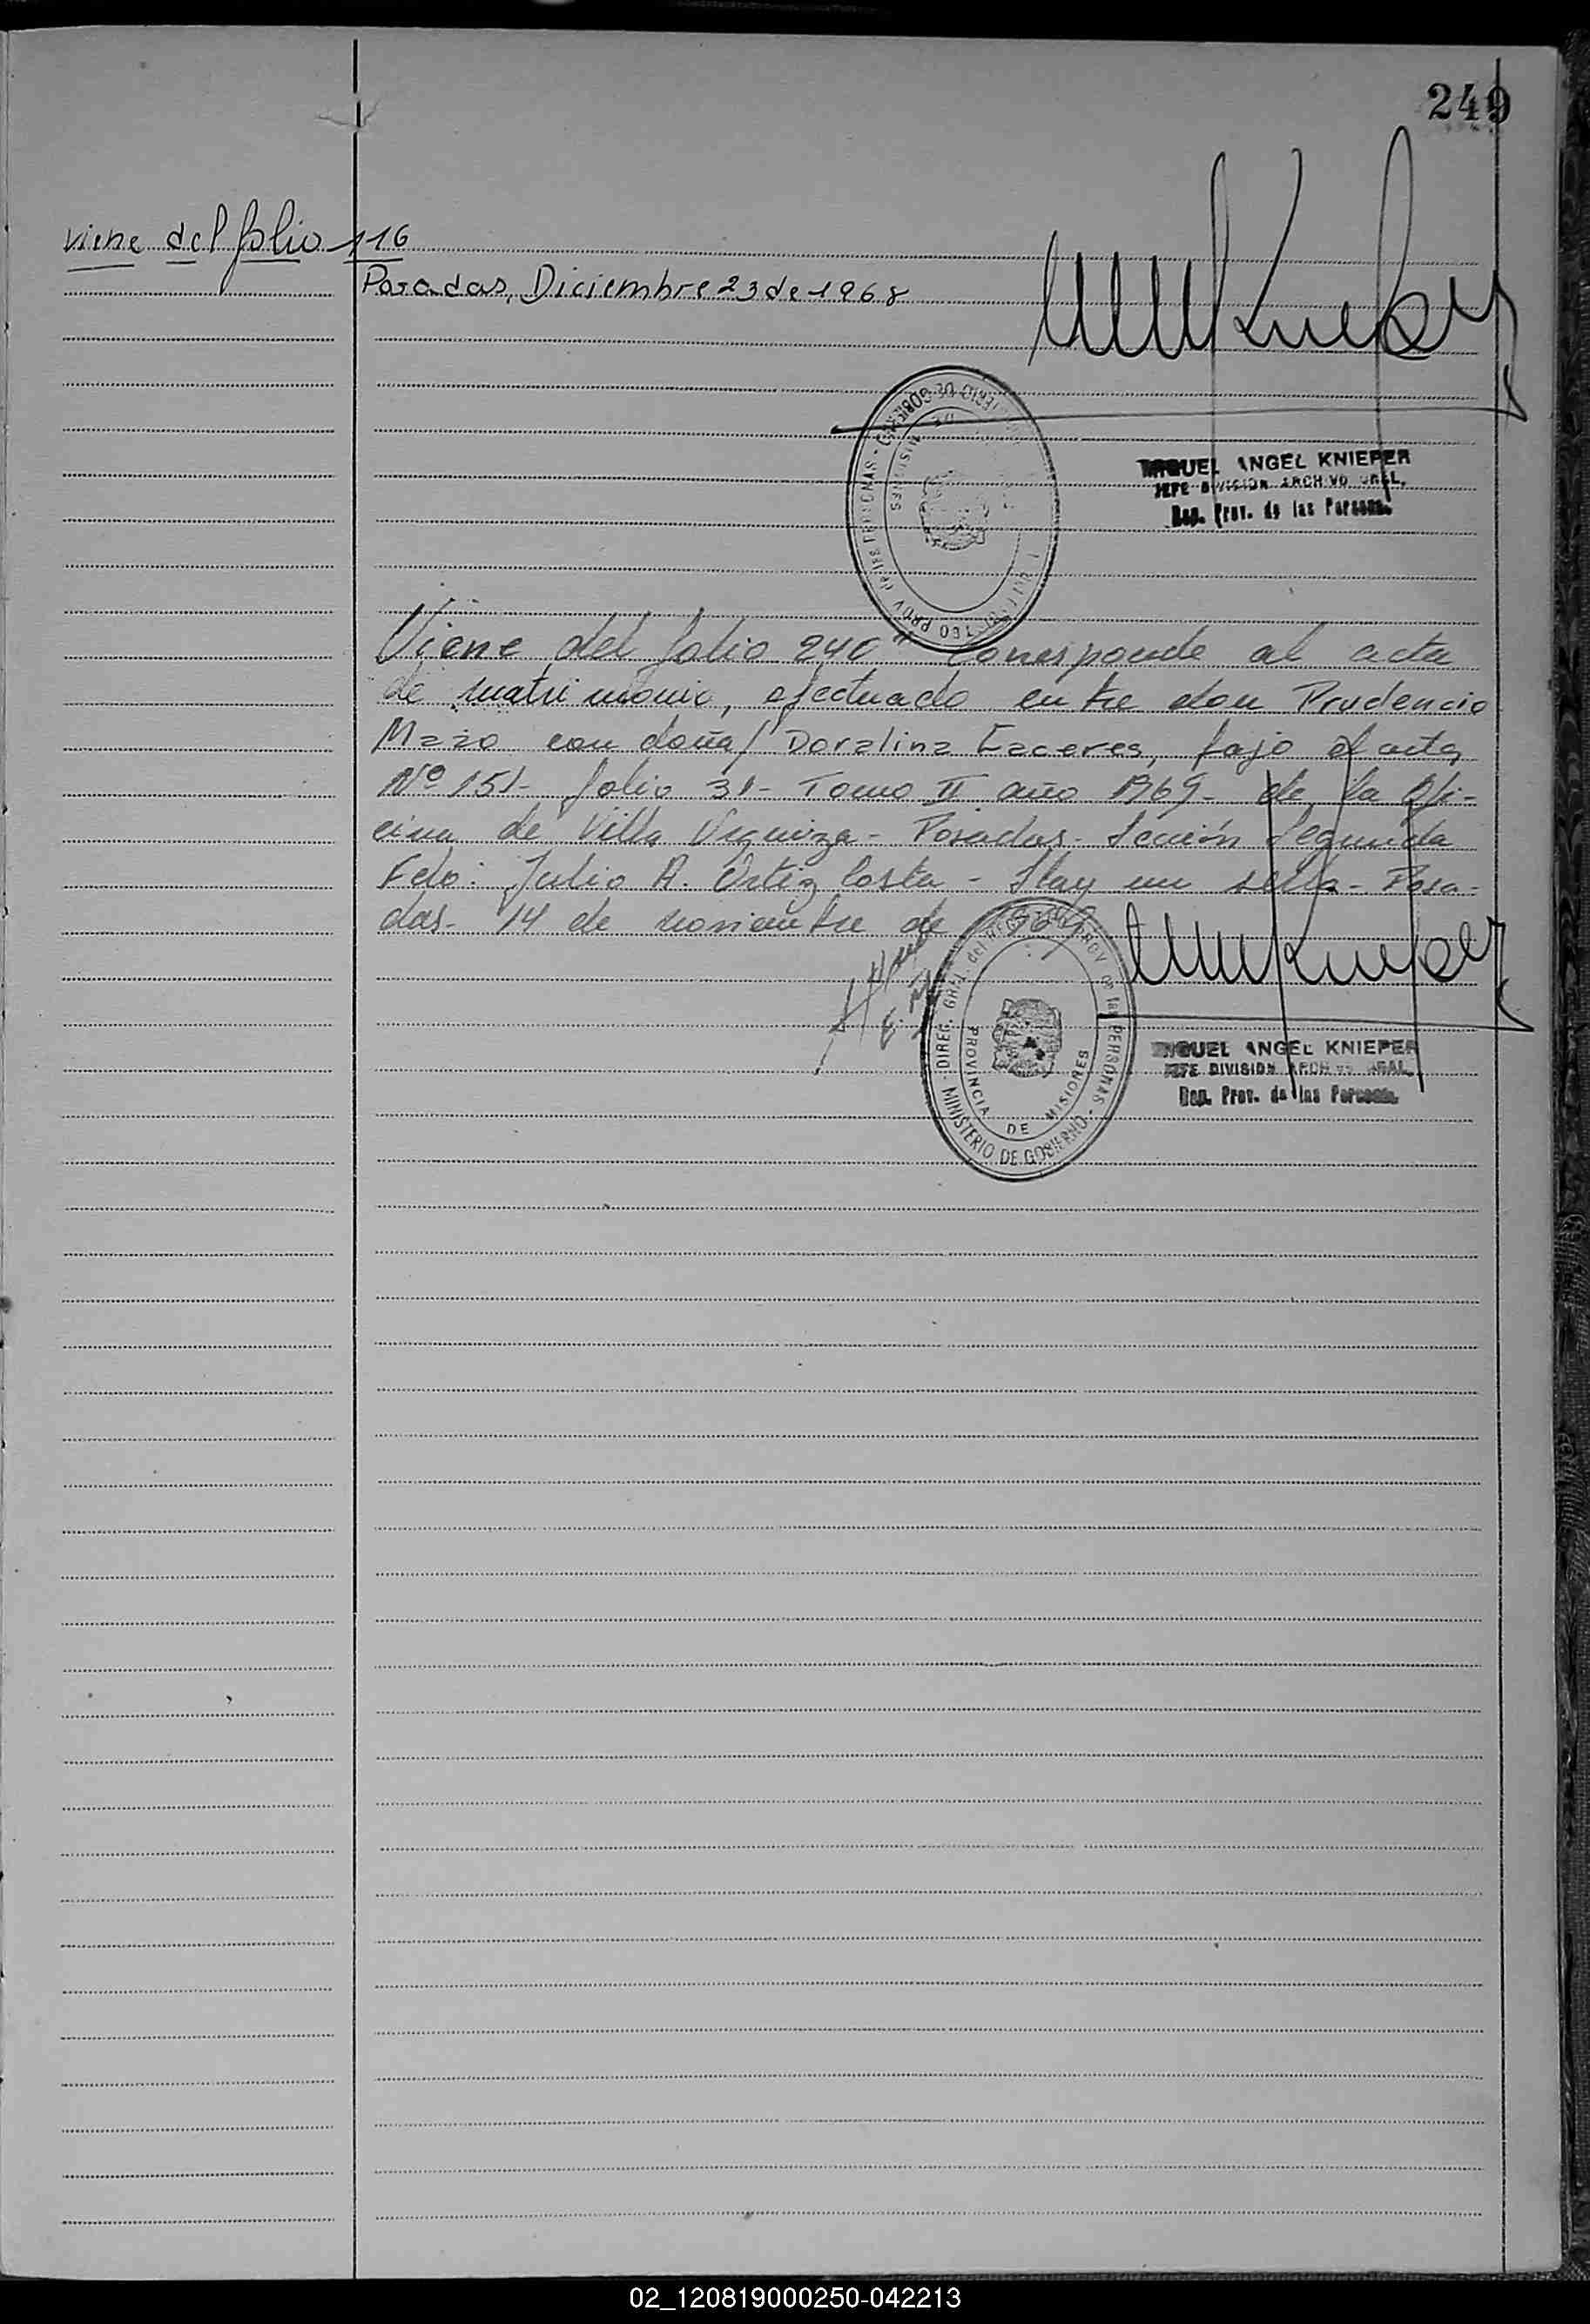 249
Viene del folio 116
Posadas, Diciembre 23 de 1968
MINISTERIO DE GOBIERNO
MISIONES
MIGUEL ANGEL KNIEPER
JEFE DIVISION ARCHIVO GRAL.
Reg. Prov. de las Personas
Viene del folio 240" Corresponde al acta
de matrimonio, efectuado entre don Prudencio
Mazo con doña/ Doralina Caceres, bajo el acta
Nº 151- folio 31- Tomo II año 1969- de la Ofi-
cina de Villa Urquiza- Posadas- Sección Segunda
Fdo: Julio A. Ortiz Costa - Hay un sello- Posa-
das- 14 de noviembre de 1969
DIREC. GRAL. del REGISTRO PROV de las PERSONAS - MINISTERIO DE GOBIERNO
PROVINCIA DE MISIONES
MIGUEL ANGEL KNIEPER
JEFE DIVISION ARCHIVO GRAL.
Reg. Prov. de las Personas
02_120819000250-042213